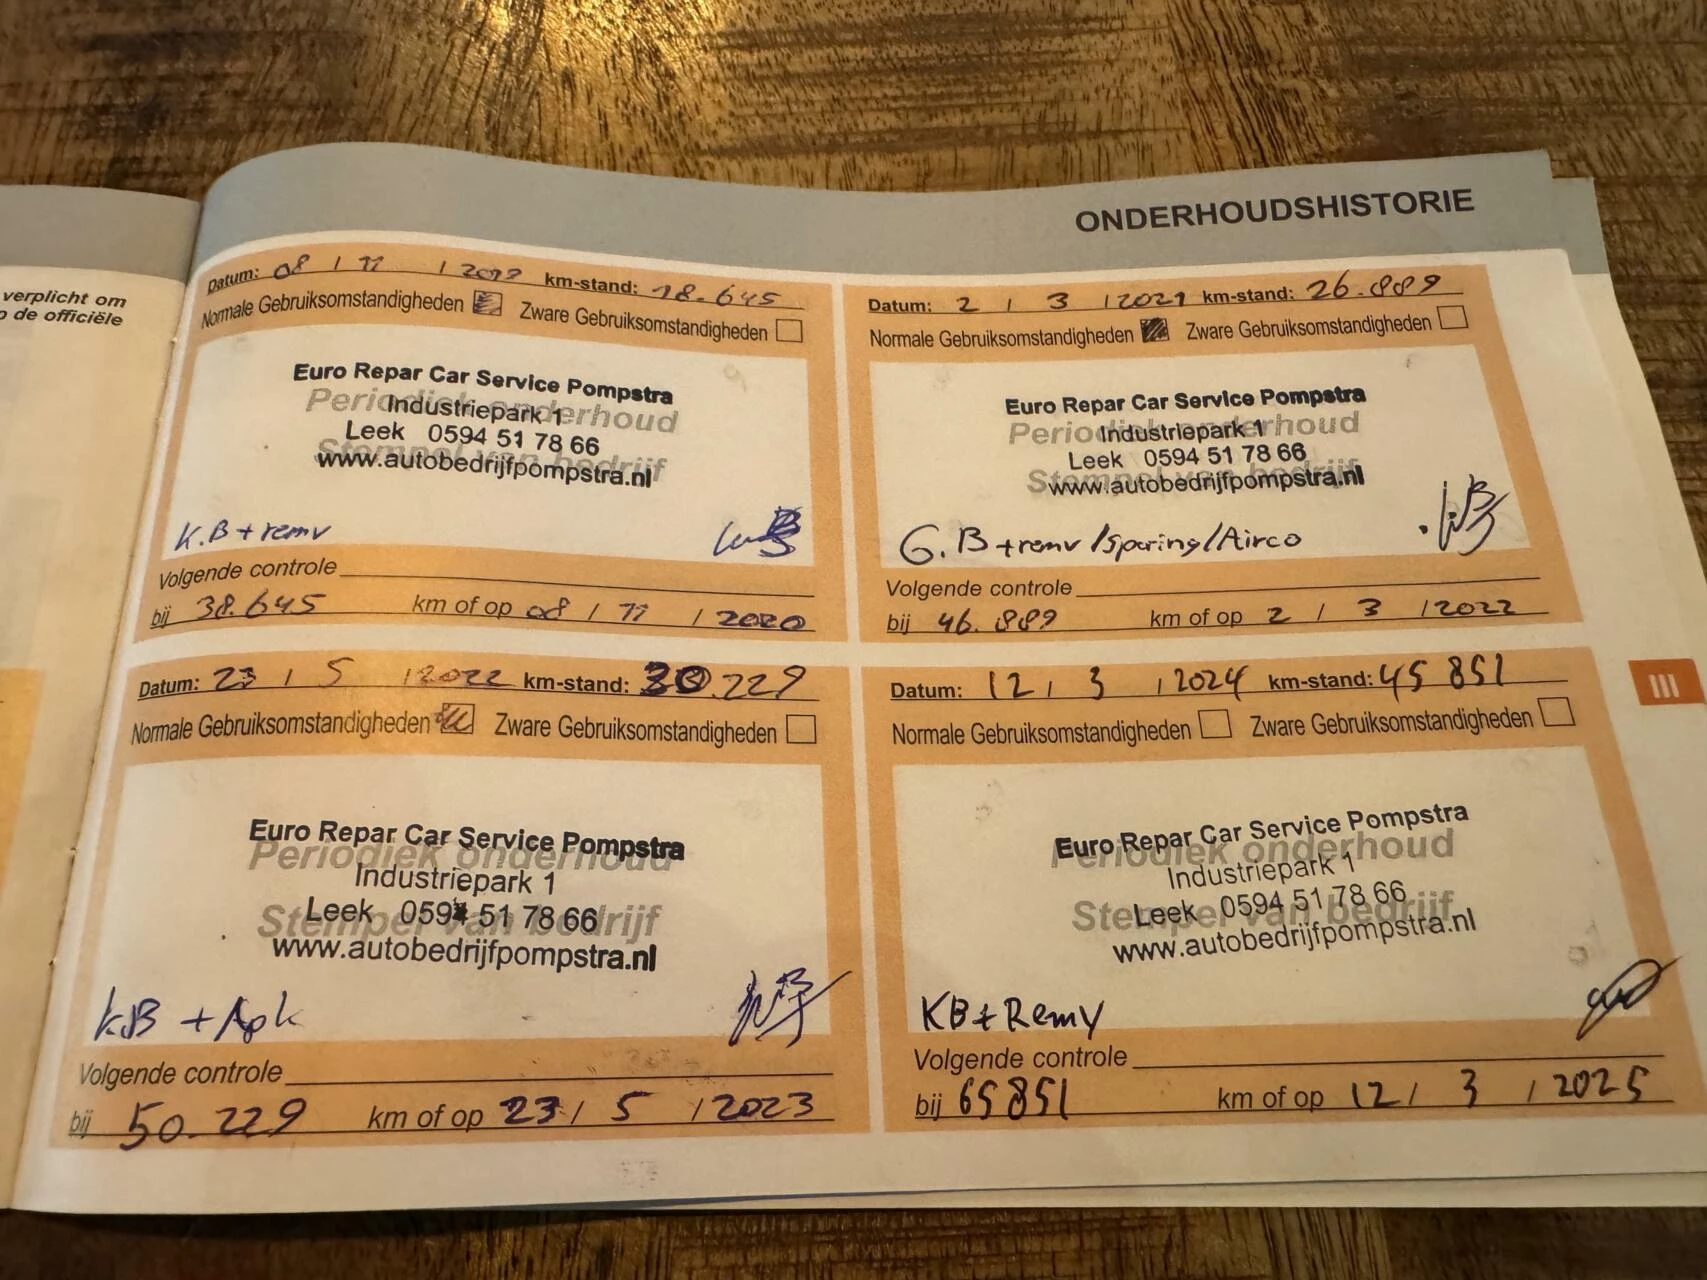 verplicht om
p de officiële
ONDERHOUDSHISTORIE
Datum: 08 / 11 / 2019 km-stand: 18.645
Normale Gebruiksomstandigheden Zware Gebruiksomstandigheden
Euro Repar Car Service Pompstra
Periodiek onderhoud
Industriepark 1
Leek 0594 51 78 66
Stempel van bedrijf
www.autobedrijfpompstra.nl
K.B + remv
Volgende controle
bij 38.645 km of op 08 / 11 / 2020
Datum: 2 / 3 / 2021 km-stand: 26.889
Normale Gebruiksomstandigheden Zware Gebruiksomstandigheden
Euro Repar Car Service Pompstra
Periodiek onderhoud
Industriepark 1
Leek 0594 51 78 66
Stempel van bedrijf
www.autobedrijfpompstra.nl
G.B + remv / Sporing / Airco
Volgende controle
bij 46.889 km of op 2 / 3 / 2022
Datum: 23 / 5 / 2022 km-stand: 30.229
Normale Gebruiksomstandigheden Zware Gebruiksomstandigheden
Euro Repar Car Service Pompstra
Periodiek onderhoud
Industriepark 1
Leek 0594 51 78 66
Stempel van bedrijf
www.autobedrijfpompstra.nl
KB + Apk
Volgende controle
bij 50.229 km of op 23 / 5 / 2023
Datum: 12 / 3 / 2024 km-stand: 45 851
Normale Gebruiksomstandigheden Zware Gebruiksomstandigheden
Euro Repar Car Service Pompstra
Periodiek onderhoud
Industriepark 1
Leek 0594 51 78 66
Stempel van bedrijf
www.autobedrijfpompstra.nl
KB + Remv
Volgende controle
bij 65851 km of op 12 / 3 / 2025
III